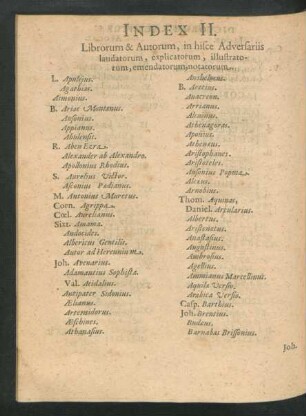 INDEX II.
Librorum & Autorum, in hisce Adversariis
laudatorum, explicatorum, illustrato-
rum, emendatorum, notatorum.
L. Apulejus.
Agathias.
Aimonius.
B. Arias Montanus.
Ausonius.
Appianus.
Abulensis.
R. Aben Ezra.
Alexander ab Alexandro.
Apollonius Rhodius.
S. Aurelius Victor.
Asconius Pedianus.
M. Antonius Muretus.
Corn. Agrippa.
Cœl. Aurelianus.
Sixt. Amama.
Andocides.
Albericus Gentilis.
Autor ad Herennium.
Joh. Avenarius.
Adamantius Sophista.
Val. Acidalius.
Antipater Sidonius.
Ælianus.
Artemidorus.
Æschines.
Athanasius.
B. Aretius.
Anacreon.
Arrianus.
Athenagoras.
Aponius.
Athenæus.
Aristophanes.
Aristoteles.
Ausonius Popma.
Alcæus.
Arnobius.
Thom. Aquinas.
Daniel. Angularius.
Albertus.
Aristenætus.
Anastasius.
Augustinus.
Ambrosius.
Agellius.
Ammianus Marcellinus.
Aquila Versio.
Arabica Versio.
Casp. Barthius.
Joh. Brentius.
Budæus.
Barnabas Brissonius.
Joh.